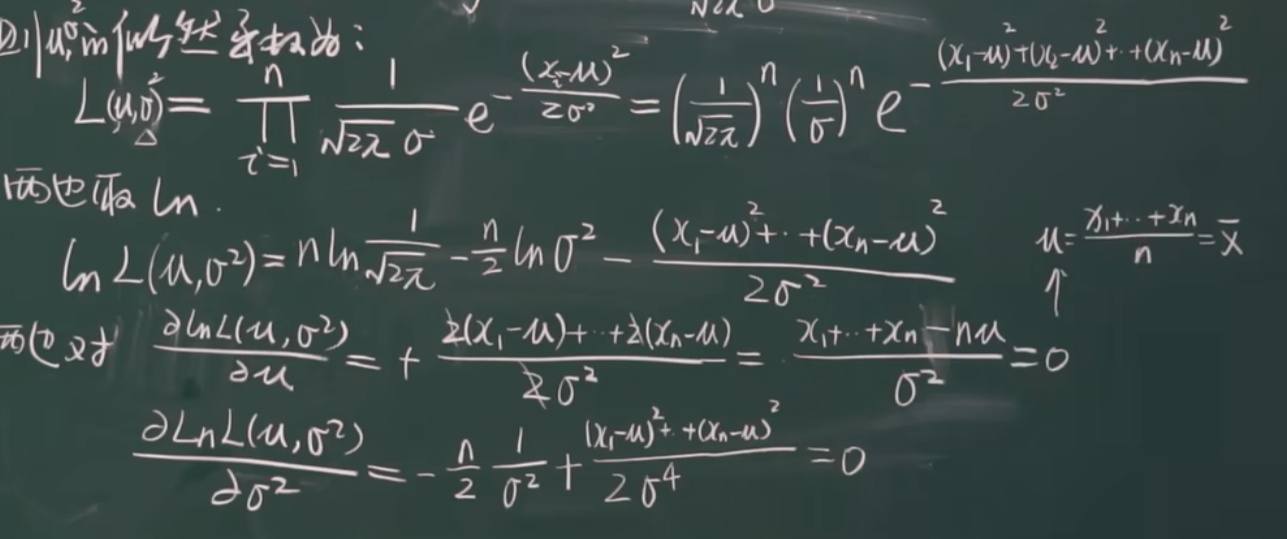 √2π σ
则 μ,σ² 的似然函数为:
L(μ,σ²) = ∏_{i=1}^{n} 1/(√2π σ) e^{-(x_i-μ)²/(2σ²)} = (1/√2π)^n (1/σ)^n e^{-((x₁-μ)²+(x₂-μ)²+··+(x_n-μ)²)/(2σ²)}
两边取 ln.
ln L(μ,σ²) = n ln 1/√2π - n/2 ln σ² - ((x₁-μ)²+··+(x_n-μ)²)/(2σ²) μ = (x₁+··+x_n)/n = x̄
两边对 ∂lnL(μ,σ²)/∂μ = + (2(x₁-μ)+··+2(x_n-μ))/(2σ²) = (x₁+··+x_n - nμ)/σ² = 0 ↑
∂LnL(μ,σ²)/∂σ² = - n/2 1/σ² + ((x₁-μ)²+··+(x_n-μ)²)/(2σ⁴) = 0